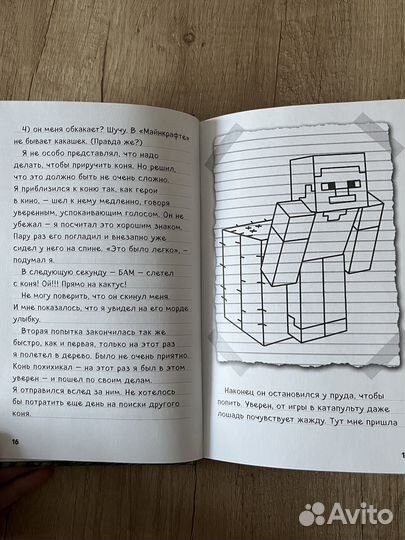 4) он меня обкакает? Шучу. В «Майнкрафте»
не бывает какашек. (Правда же?)
Я не особо представлял, что надо
делать, чтобы приручить коня. Но решил,
что это должно быть не очень сложно.
Я приблизился к коню так, как герои
в кино, – шел к нему медленно, говоря
уверенным, успокаивающим голосом. Он не
убежал – я посчитал это хорошим знаком.
Пару раз его погладил и внезапно уже
сидел у него на спине. «Это было легко», –
подумал я.
В следующую секунду – БАМ – слетел
с коня! Ой!!! Прямо на кактус!
Не могу поверить, что он скинул меня.
И мне показалось, что я увидел на его морде
улыбку.
Вторая попытка закончилась так же
быстро, как и первая, только на этот раз
я полетел в дерево. Было не очень приятно.
Конь похихикал – на этот раз я был в этом
уверен – и пошел по своим делам.
Я отправился вслед за ним. Не хотелось
бы потратить еще день на поиски другого
коня.
16
Наконец он остановился у пруда, чтобы
попить. Уверен, от игры в катапульту даже
лошадь почувствует жажду. Тут мне пришла
Avito